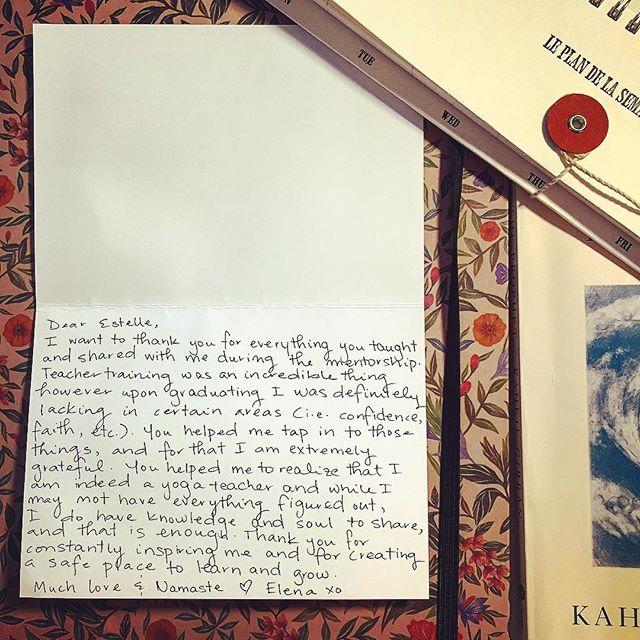 TUE
WED
THU
FRI
LE PLAN DE LA
Dear Estelle,
I want to thank you for everything you taught
and shared with me during the mentorship.
Teacher training was an incredible thing
however upon graduating I was definitely
lacking in certain areas (i.e. confidence,
faith, etc.). You helped me tap in to those
things, and for that I am extremely
grateful. You helped me to realize that I
am indeed a yoga teacher and while I
may not have everything figured out,
I do have knowledge and soul to share,
and that is enough. Thank you for
constantly inspiring me and for creating
a safe place to learn and grow.
Much love & Namaste ♡ Elena xo
KAH